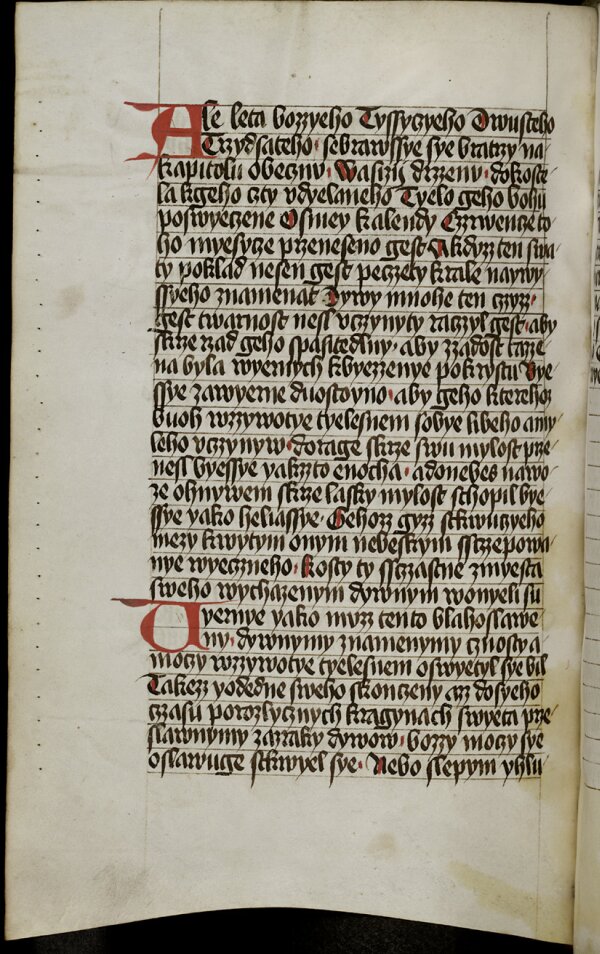 Ale leta bozzyeho Tyssyczyeho Dwusteho
Trzydsateho· sebrawssye sye bratrzy na
kapitolu obecznu· Wasizij drzenu· dokoste
la kgeho czty vdyelaneho Tyelo geho bohu
poswyeczene Osmey kalendy Czrwencze to
ho myesycze przeneseno gest A kdyz ten swa
ty poklad nesen gest peczety krale naywy
ssyeho znamenat Dywy mnohe ten czyzz·
gest twarnost nesl vczynyty raczyl gest· aby
skrze rzad geho spasitedlny· aby zzadost tazze
na byla wyernych kbyezzenye pokrystu Bye
ssye zawyerne duostoyno· aby geho kterehoz
buoh wzzywotye tyelesnem sobye libeho a my
leho vczynyw· dorage skrze swu mylost prze
nesl byessye yakzto enocha· adonebes nawo
ze ohnywem skrze lasky mylost schopil bye
ssye yako heliasse· Gehozz gyzz stkwuczyeho
mezy kwytym onym nebeskym sszczepowa
nye wyeczneho· Kosty ty ssczastne zmyesta
sweho wychazenym dywnym wonyeli su
Uyernye yako muzz tento blahoslawe
ny· dywnymy znamenymy cznosty a
moczy wzzywotye tyelesnem oswyetyl sye bil
Takezz yodedne sweho skonczeny azz dosyeho
czzasu porozlycznych kragynach swyeta prze
slawnymy zazraky dywow· bozzy moczy sye
oslawuge stkwyel sye· Nebo slepym yhlu